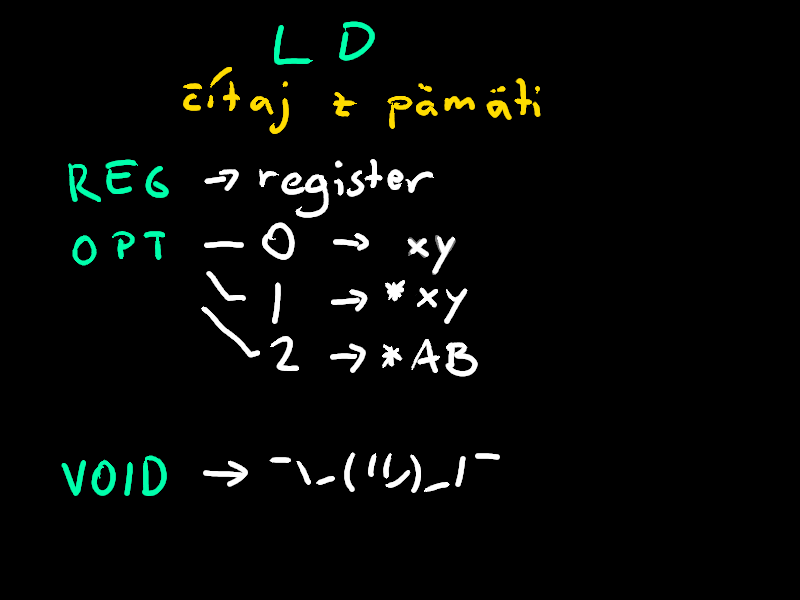 LD
čítaj z pämäti
REG → register
OPT — 0 → xy
1 → *xy
2 → *AB
VOID → ¯\_(ツ)_/¯